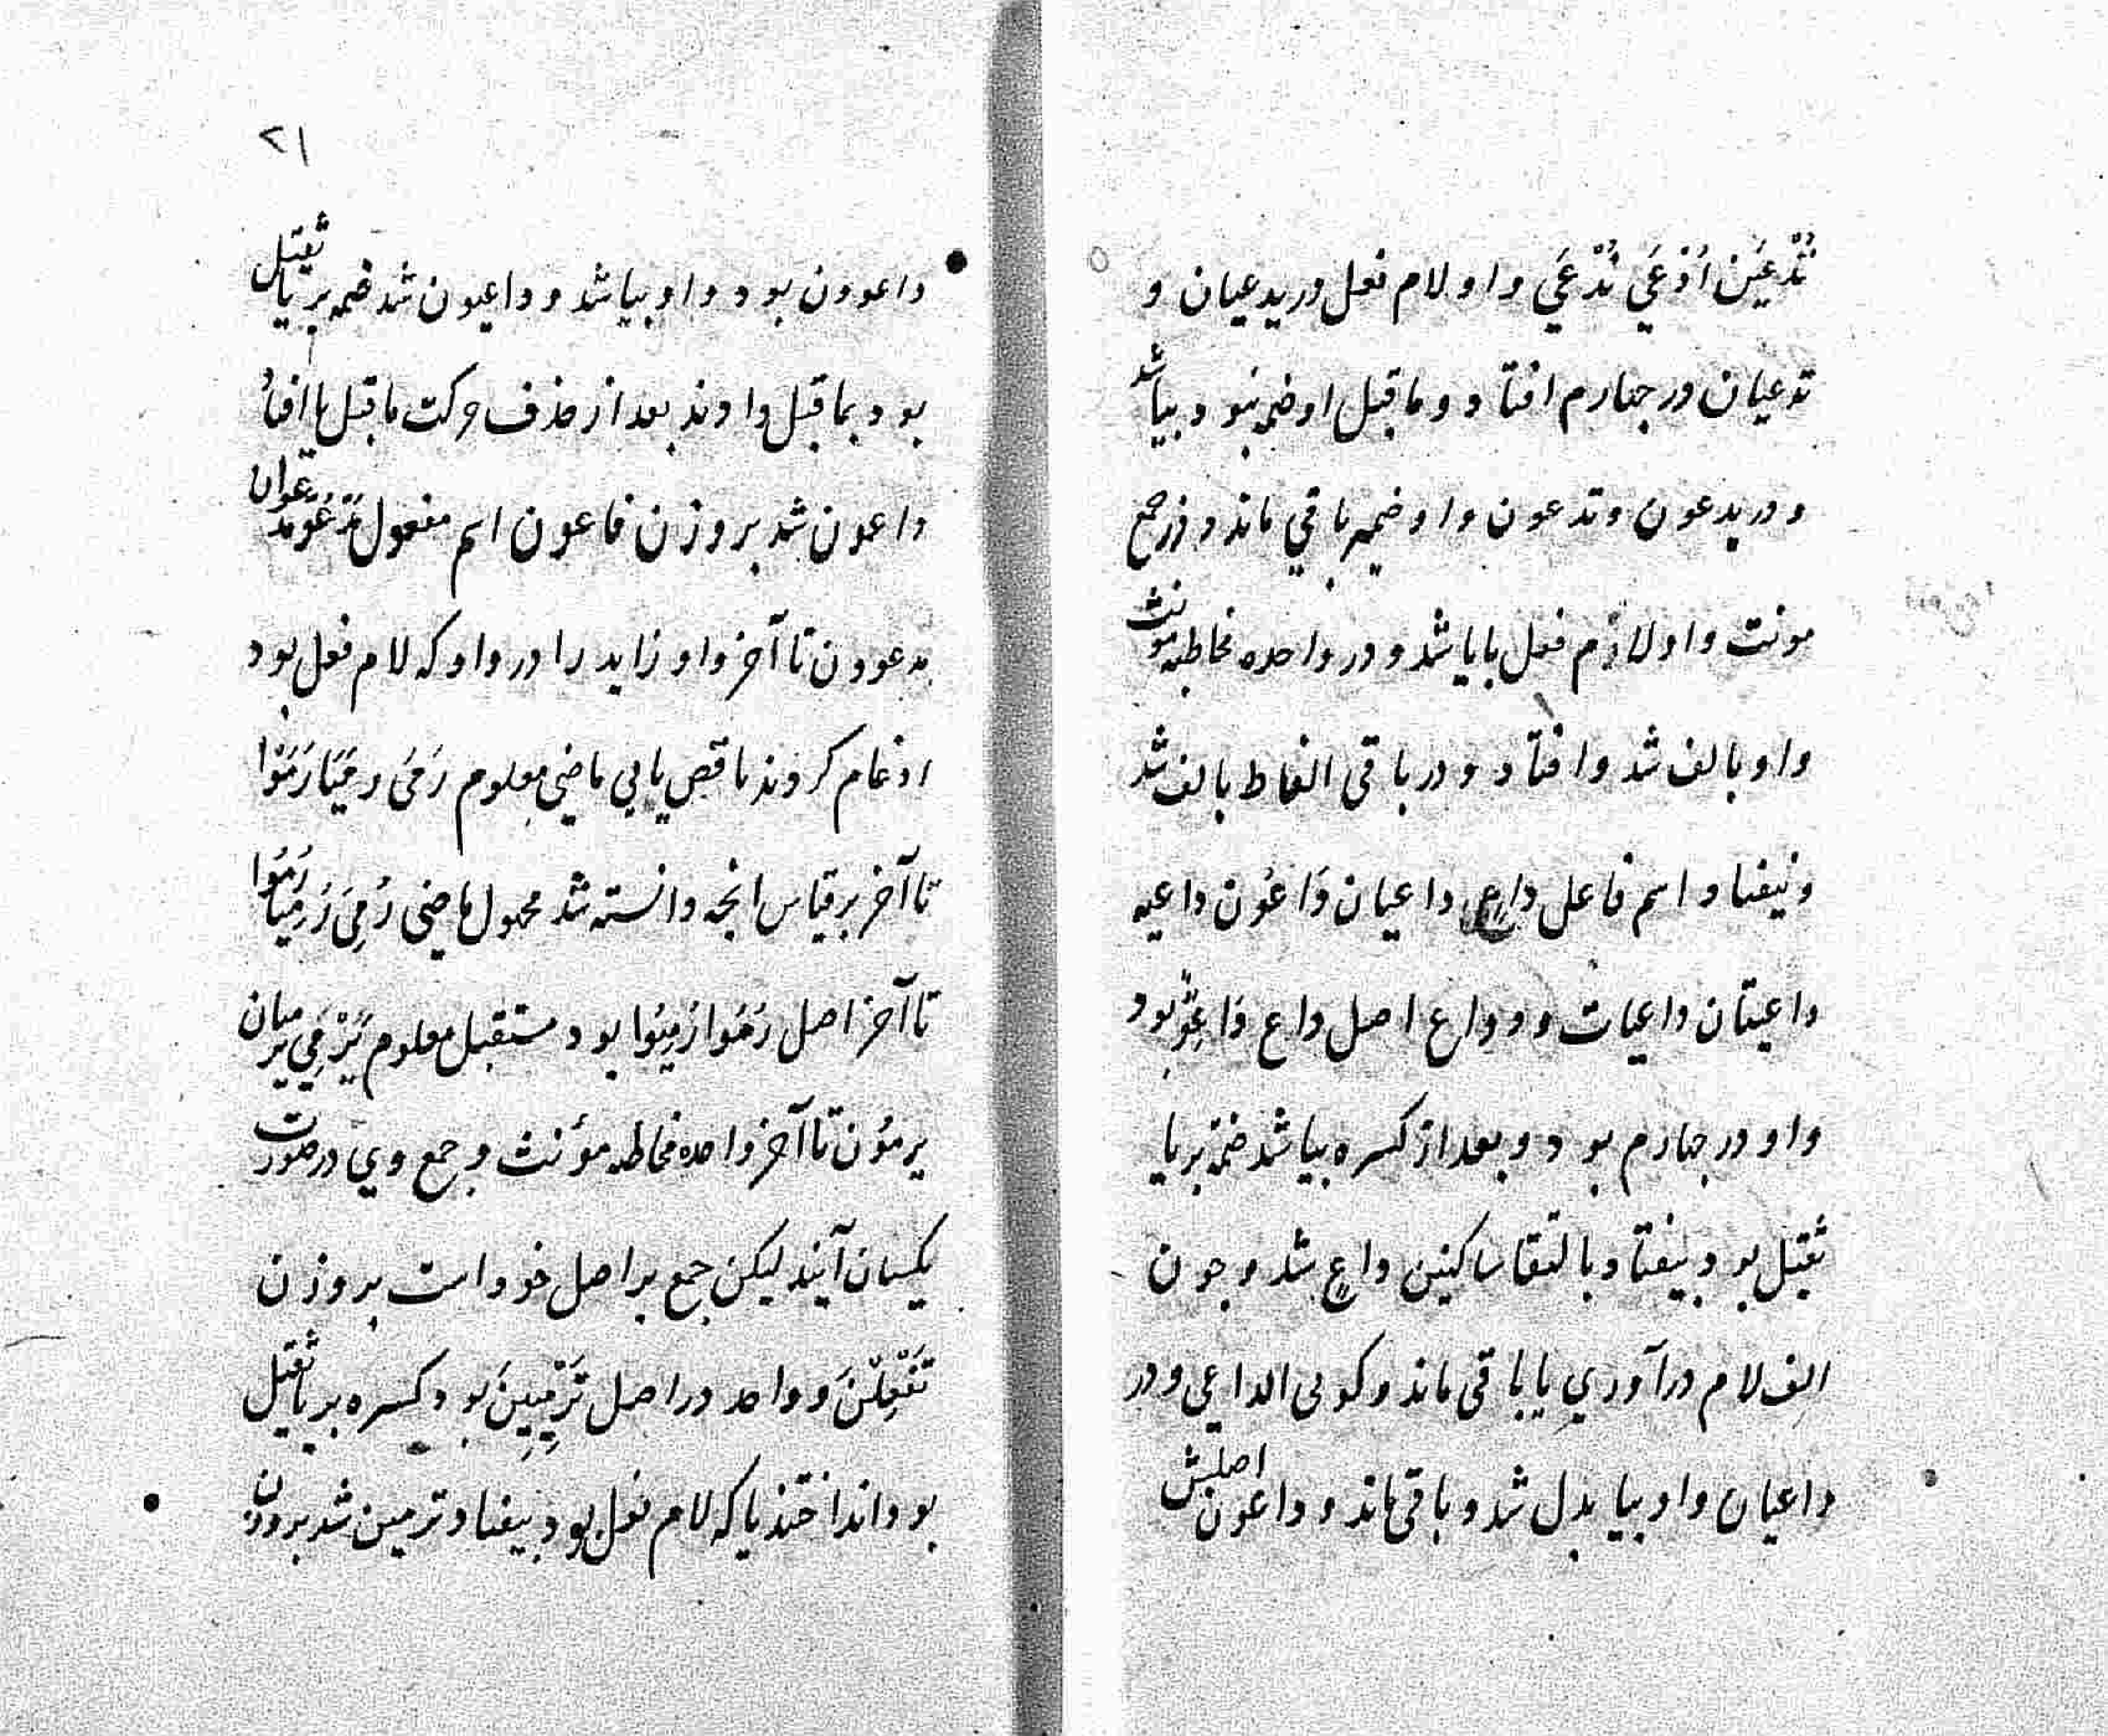 تُدْعَيْنَ اُدْعَيٰ نُدْعَيٰ واو لام فعل در یدعیان و
تدعیان در چهارم افتاد و ماقبل او ضمه نبود بیا شد
و در یدعون و تدعون واو ضمیر باقی ماند و در جمع
مونث واو لام فعل با یا شد و در واحده مخاطبه مونث
واو بالف شد و افتاد و در باقی الفاظ بالف شد
و نیفتاد اسم فاعل داعٍ داعیان دَاعُون داعیه
داعیتان داعیات و دواع اصل داع دَاعِوٌ بود
واو در چهارم بود و بعد از کسره بیا شد ضمّه بر یا
ثقیل بود بیفتاد بالتقا ساکنین داعٍ شد و چون
الف لام در آوری یا باقی ماند و کویی الداعی و در
داعیان واو بیا بدل شد و باقی ماند و داعون اصلش
۲۱
داعوون بود واو بیا شد و داعیون شد ضمه بر یا ثقیل
بود بماقبل دادند بعد از حذف حرکت ماقبل یا افتاد
داعون شد بر وزن فاعون اسم مفعول مَدْعُوٌّ مدعوان
مدعوون تا آخر واو زاید را در واو که لام فعل بود
ادغام کردند ناقص یایی ماضی معلوم رَمَیٰ رمَیَا رَمَوْا
تا آخر بر قیاس انچه دانسته شد مجهول ماضی رُمِیَ رُمِیَا رُمُوا
تا آخر اصل رُمُوا رُمِیُوا بود مستقبل معلوم یَرْمِی یرمیان
یرمُون تا آخر واحده مخاطبه مؤنث و جمع وی در صورت
یکسان آیند لیکن جمع بر اصل خود است بر وزن
تَفْعِلْنَ و واحد در اصل تَرْمِیِینَ بود کسره بر یا ثقیل
بود انداختند یا که لام فعل بود بیفتاد ترمین شد بر وزن